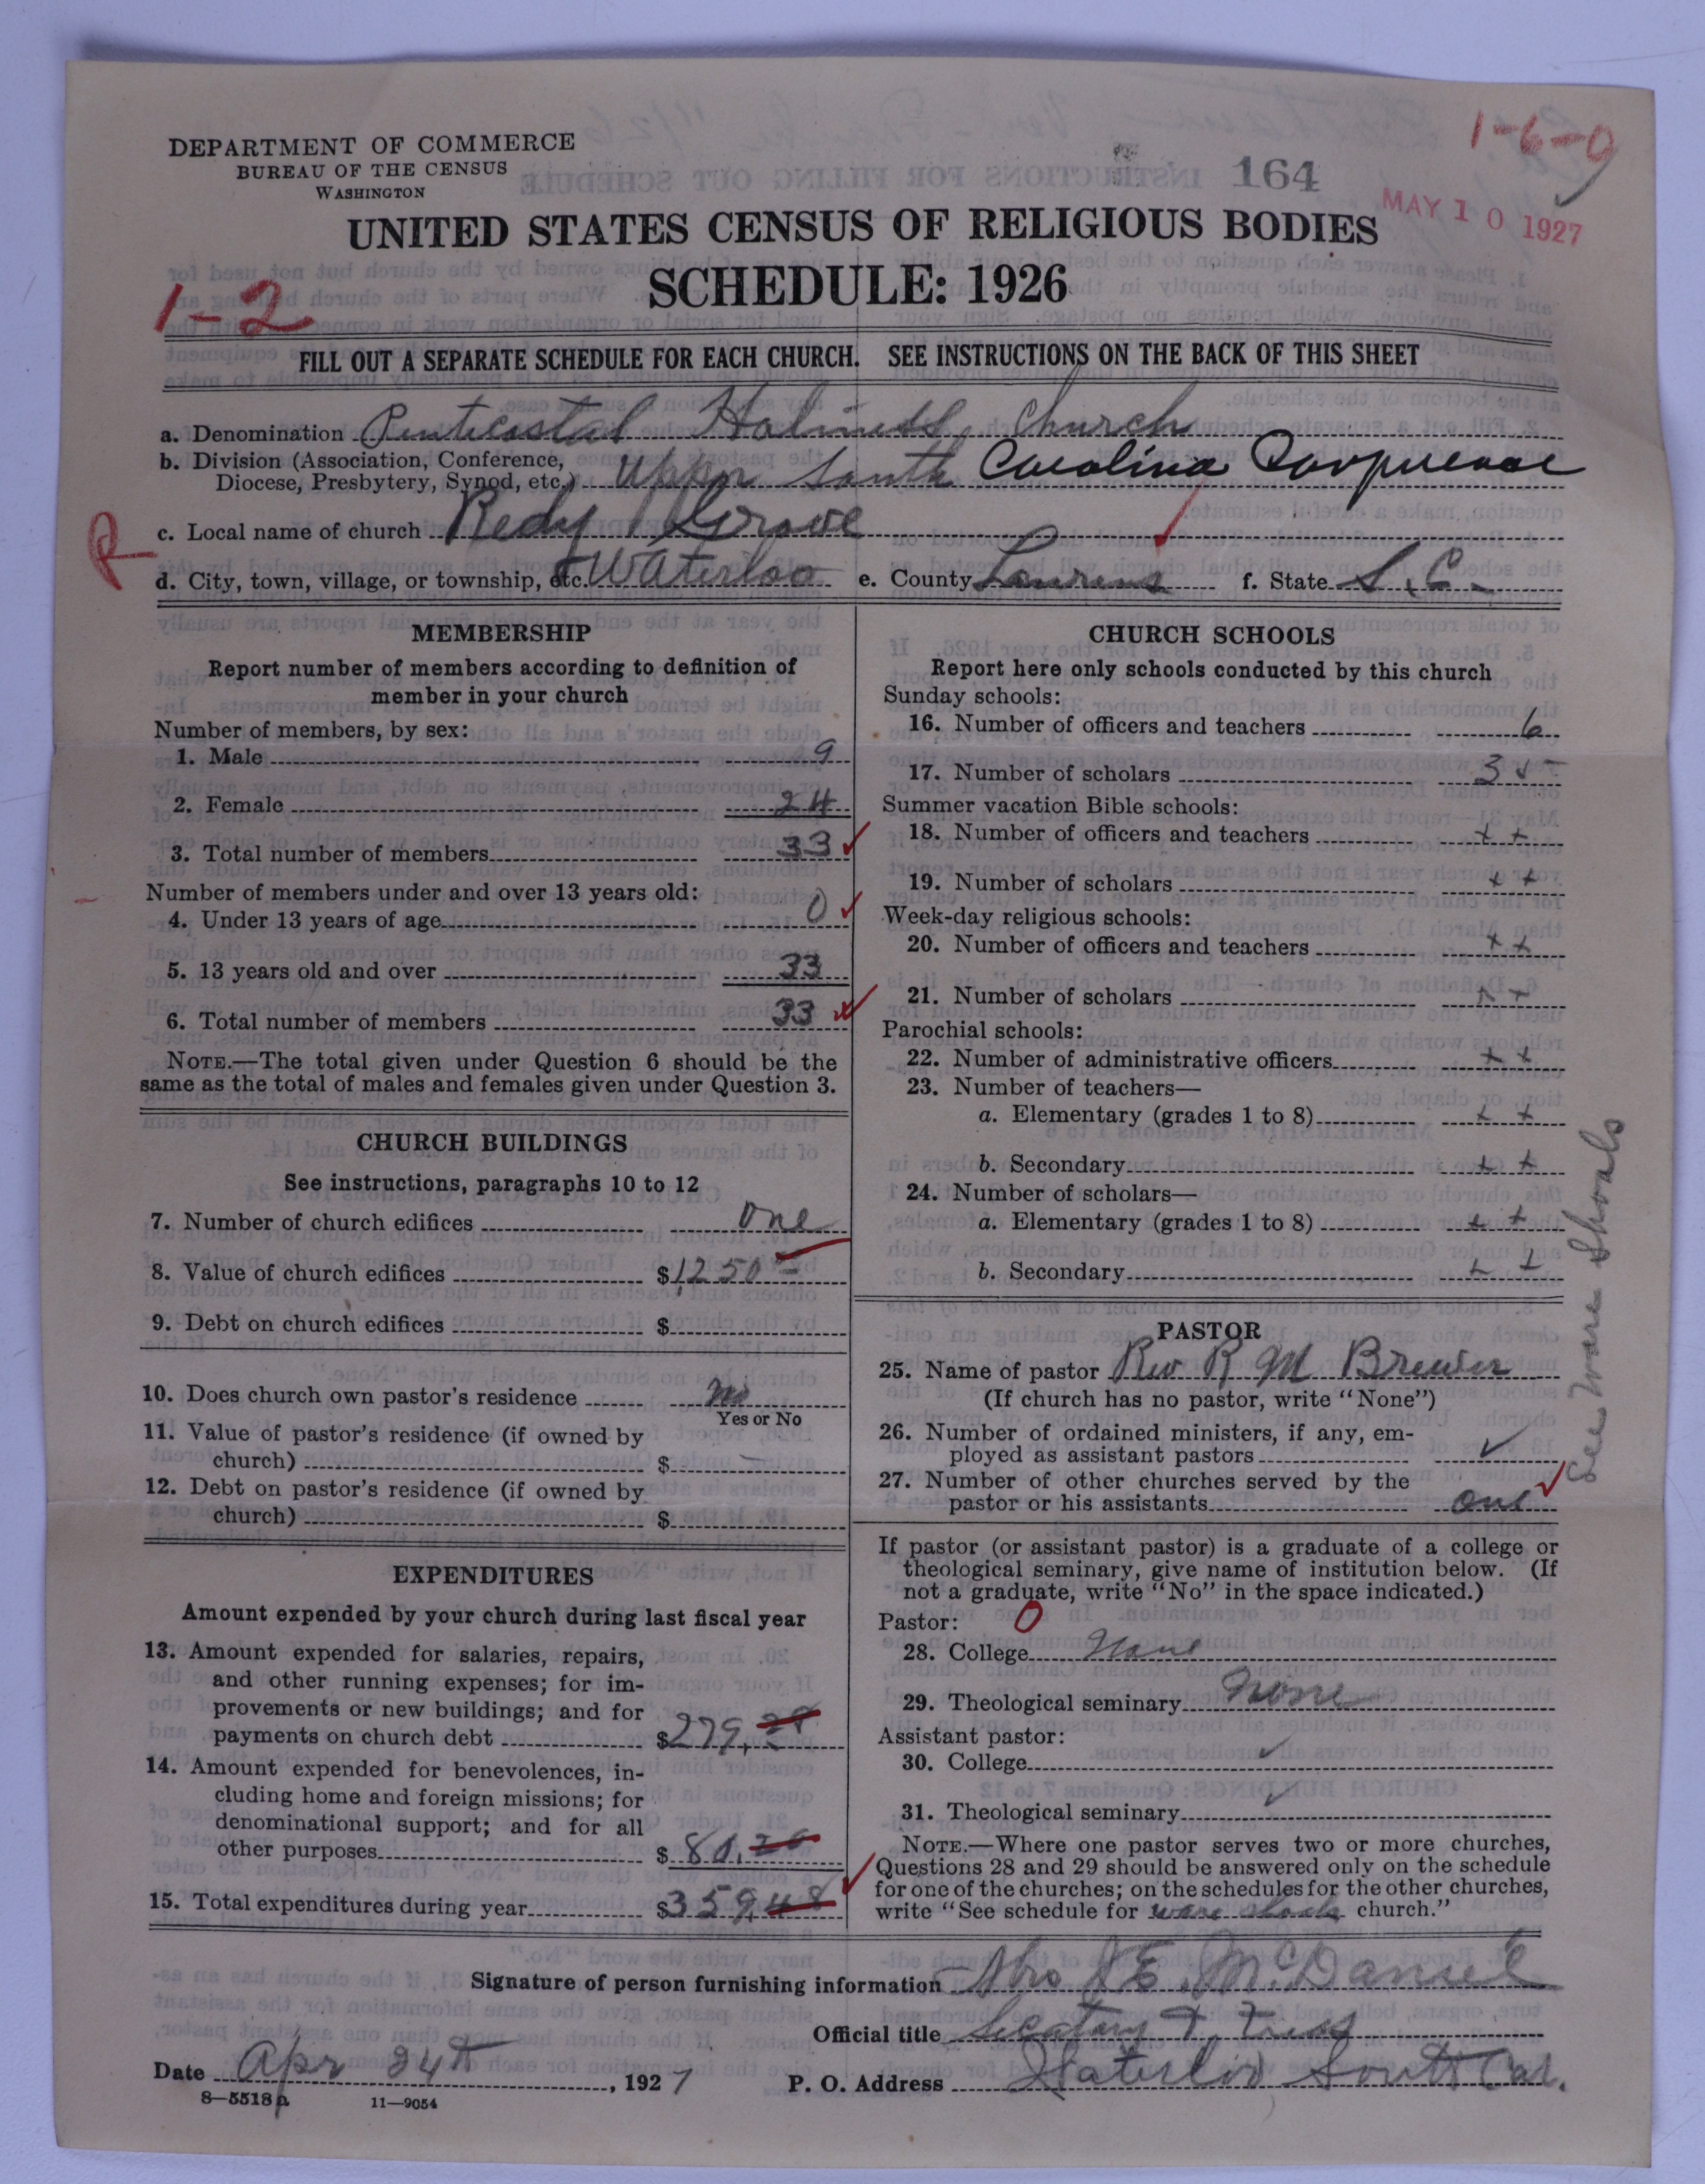 1-6-0
DEPARTMENT OF COMMERCE
BUREAU OF THE CENSUS
WASHINGTON
164
MAY 10 1927
UNITED STATES CENSUS OF RELIGIOUS BODIES
SCHEDULE: 1926
1-2
FILL OUT A SEPARATE SCHEDULE FOR EACH CHURCH. SEE INSTRUCTIONS ON THE BACK OF THIS SHEET
a. Denomination Pentecostal Holiness Church
b. Division (Association, Conference,
Diocese, Presbytery, Synod, etc.) Upper South Carolina
R
c. Local name of church Redy Grove
d. City, town, village, or township, etc. Waterloo e. County Laurens f. State S.C.
MEMBERSHIP
Report number of members according to definition of
member in your church
Number of members, by sex:
1. Male 9
2. Female 24
3. Total number of members 33
Number of members under and over 13 years old:
4. Under 13 years of age 0
5. 13 years old and over 33
6. Total number of members 33
NOTE.—The total given under Question 6 should be the
same as the total of males and females given under Question 3.
CHURCH BUILDINGS
See instructions, paragraphs 10 to 12
7. Number of church edifices one
8. Value of church edifices $1250
9. Debt on church edifices $
10. Does church own pastor's residence No
Yes or No
11. Value of pastor's residence (if owned by
church) $
12. Debt on pastor's residence (if owned by
church) $
EXPENDITURES
Amount expended by your church during last fiscal year
13. Amount expended for salaries, repairs,
and other running expenses; for im-
provements or new buildings; and for
payments on church debt $279.28
14. Amount expended for benevolences, in-
cluding home and foreign missions; for
denominational support; and for all
other purposes $80.20
15. Total expenditures during year $359.48
CHURCH SCHOOLS
Report here only schools conducted by this church
Sunday schools:
16. Number of officers and teachers 6
17. Number of scholars 35
Summer vacation Bible schools:
18. Number of officers and teachers + +
19. Number of scholars + +
Week-day religious schools:
20. Number of officers and teachers + +
21. Number of scholars + +
Parochial schools:
22. Number of administrative officers + +
23. Number of teachers—
a. Elementary (grades 1 to 8) + +
b. Secondary + +
24. Number of scholars—
a. Elementary (grades 1 to 8) + +
b. Secondary + +
See Ware Shoals
PASTOR
25. Name of pastor Rev R M Brewer
(If church has no pastor, write "None")
26. Number of ordained ministers, if any, em-
ployed as assistant pastors
27. Number of other churches served by the
pastor or his assistants one
If pastor (or assistant pastor) is a graduate of a college or
theological seminary, give name of institution below. (If
not a graduate, write "No" in the space indicated.)
Pastor: 0
28. College None
29. Theological seminary None
Assistant pastor:
30. College
31. Theological seminary
NOTE.—Where one pastor serves two or more churches,
Questions 28 and 29 should be answered only on the schedule
for one of the churches; on the schedules for the other churches,
write "See schedule for ware shoals church."
Signature of person furnishing information E. McDaniel
Official title Secatary + Treas
Date Apr 24th, 1927 P. O. Address Waterloo South Car.
8—5518a 11—9054